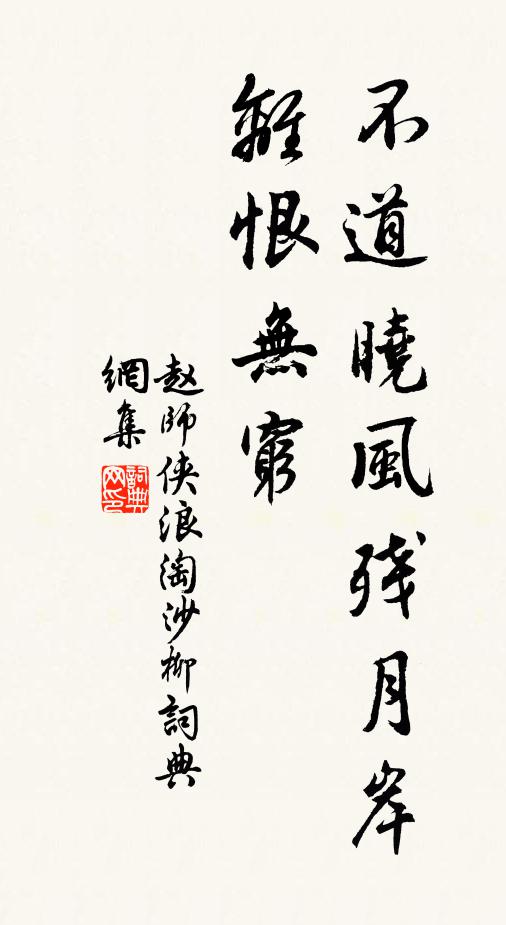 不道曉風残月岸
離恨無窮
赵師侠浪淘沙柳詞典
網集
詞典
网印